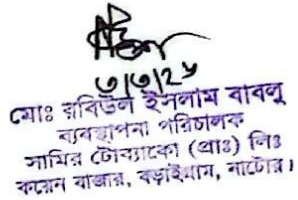 ৩/৩/২৬
মোঃ রবিউল ইসলাম বাবলু
ব্যবস্থাপনা পরিচালক
সামির টোব্যাকো (প্রাঃ) লিঃ
কয়েন বাজার, বড়াইগ্রাম, নাটোর।